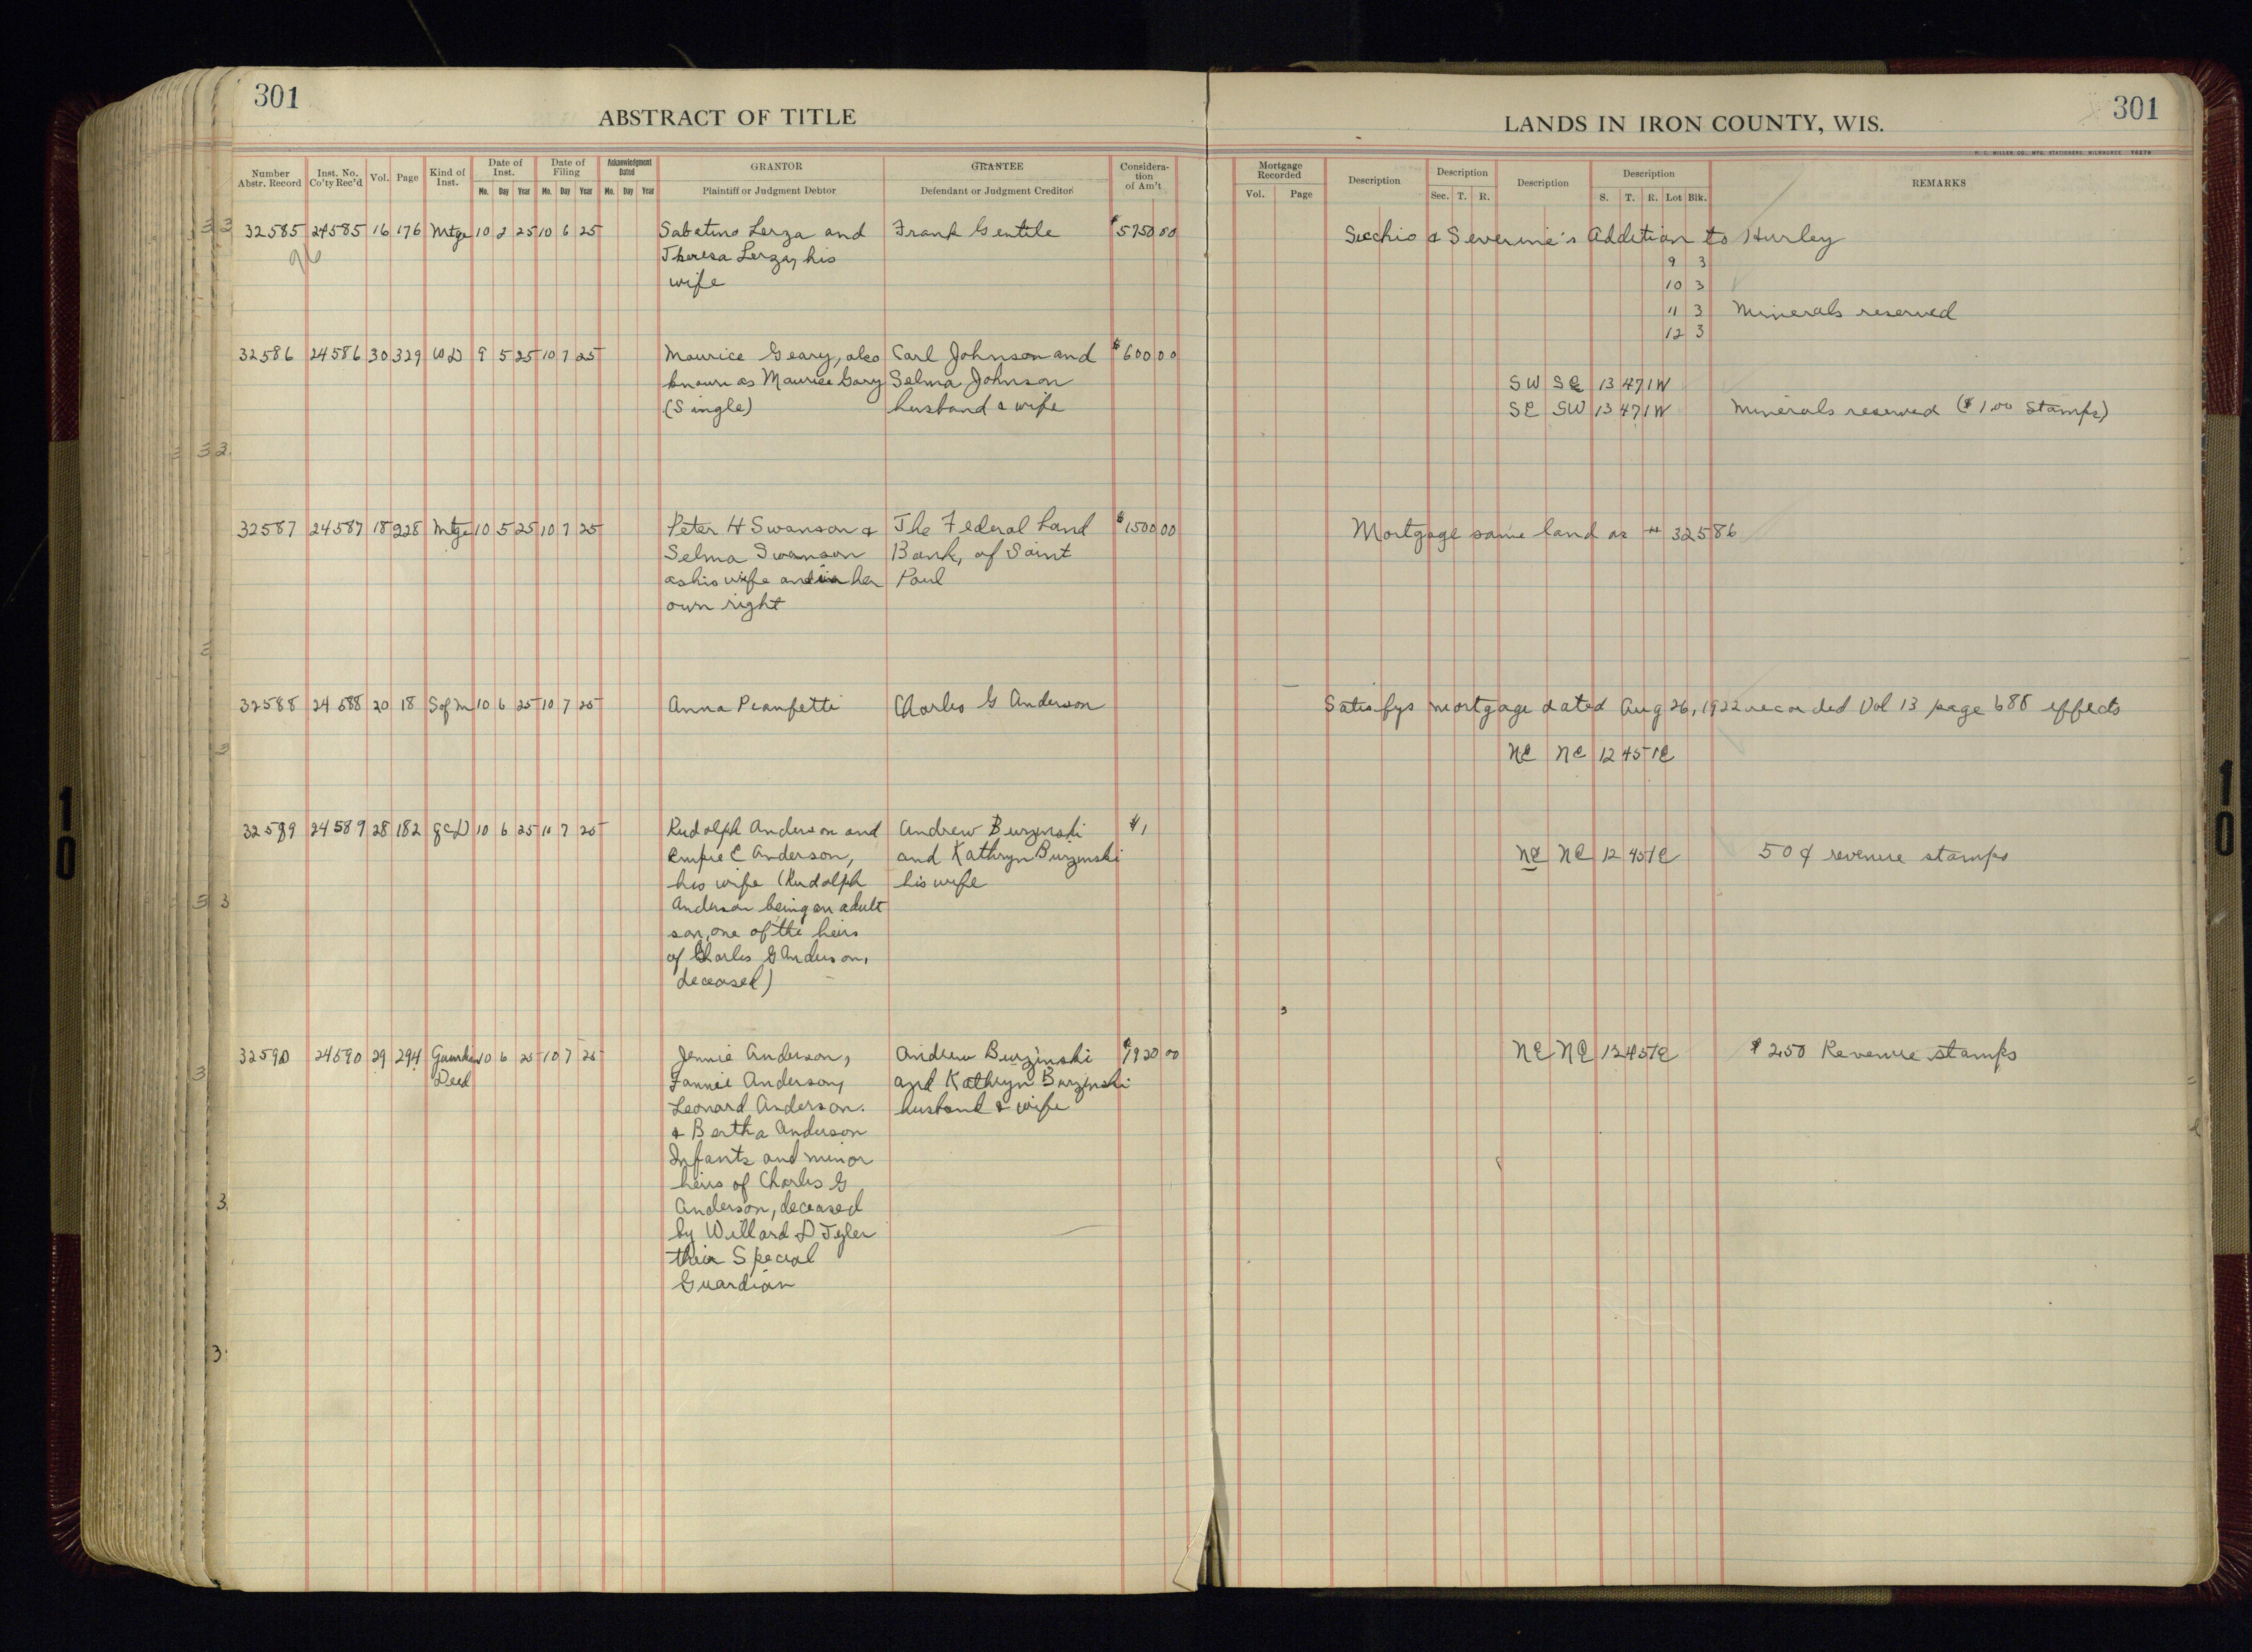 301
ABSTRACT OF TITLE
LANDS IN IRON COUNTY, WIS.
301
Number Abstr. Record Inst. No. Co'ty Rec'd Vol. Page Kind of Inst. Date of Inst. Mo. Day Year Date of Filing Mo. Day Year Acknowledgment Dated Mo. Day Year GRANTOR Plaintiff or Judgment Debtor GRANTEE Defendant or Judgment Creditor Considera-tion of Am't.
Mortgage Recorded Vol. Page Description Description Sec. T. R. Description Description S. T. R. Lot Blk. REMARKS
32585 24585 16 176 Mtge 10 2 25 10 6 25 Sabatino Lerza and Frank Gentile $5750 00 Secchio & Severine's Addition to Hurley
Theresa Lerza, his 9 3
wife 10 3
11 3 Minerals reserved
12 3
32586 24586 30 329 WD 9 5 25 10 7 25 Maurice Geary, also Carl Johnson and $600 00
known as Maurice Gary Selma Johnson SW SE 13 47 1W
(Single) husband & wife SE SW 13 47 1W Minerals reserved ($1.00 Stamps)
32587 24587 18 228 Mtge 10 5 25 10 7 25 Peter H Swanson & The Federal Land $1500 00 Mortgage same land as # 32586
Selma Swanson Bank, of Saint
as his wife and in her Paul
own right
32588 24588 20 18 S of M 10 6 25 10 7 25 Anna Pianfetti Charles G Anderson Satisfys mortgage dated Aug 26, 1922 recorded Vol 13 page 688 effects
NE NE 12 45 1E
32589 24589 28 182 QCD 10 6 25 10 7 25 Rudolph Anderson and Andrew Burzinski $1
E Anderson, and Kathryn Burzinski NE NE 12 45 1E 50¢ revenue stamps
his wife (Rudolph his wife
Anderson being an adult
son, one of the heirs
of Charles G Anderson,
deceased)
32590 24590 29 294 Guardian 10 6 25 10 7 25 Jennie Anderson, Andrew Burzinski $1920 00 NE NE 12 45 1E $2.50 Revenue stamps
Deed Fannie Anderson, and Kathryn Burzinski
Leonard Anderson. husband & wife
& Bertha Anderson
Infants and minor
heirs of Charles G
Anderson, deceased
by Willard D Tyler
their Special
Guardian
10
10